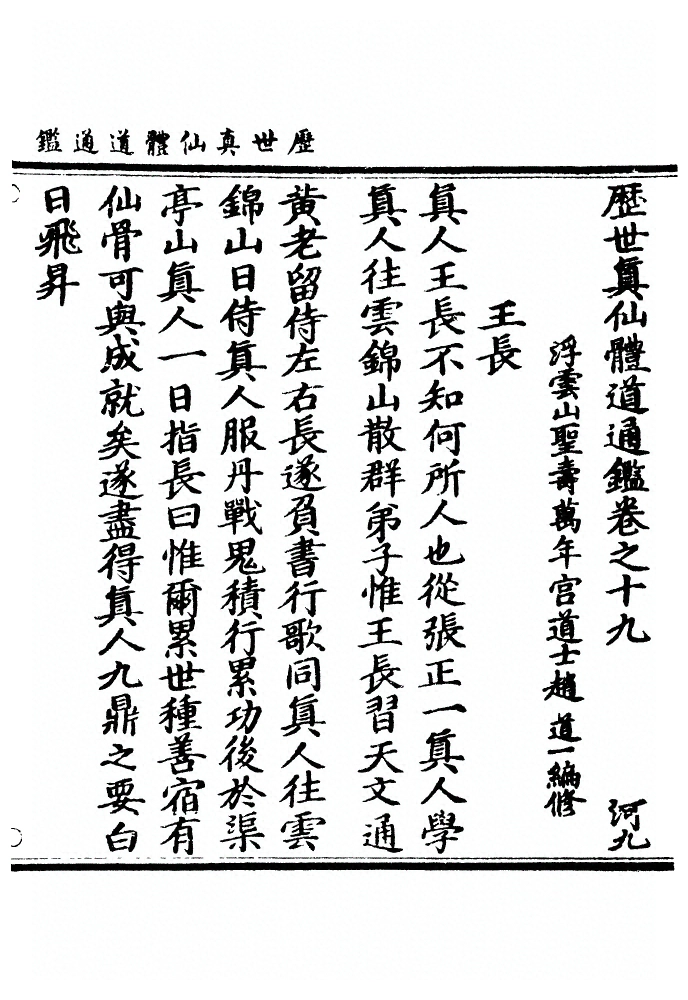 歷世真仙體道通鑑
歷世眞仙體道通鑑卷之十九　河九
浮雲山聖壽萬年宮道士趙道一編修
王長
眞人王長不知何所人也從張正一眞人學
眞人往雲錦山散群弟子惟王長習天文通
黃老留侍左右長遂負書行歌同眞人往雲
錦山日侍眞人服丹戰鬼積行累功後於渠
亭山眞人一日指長曰惟爾累世種善宿有
仙骨可與成就矣遂盡得眞人九鼎之要白
日飛昇